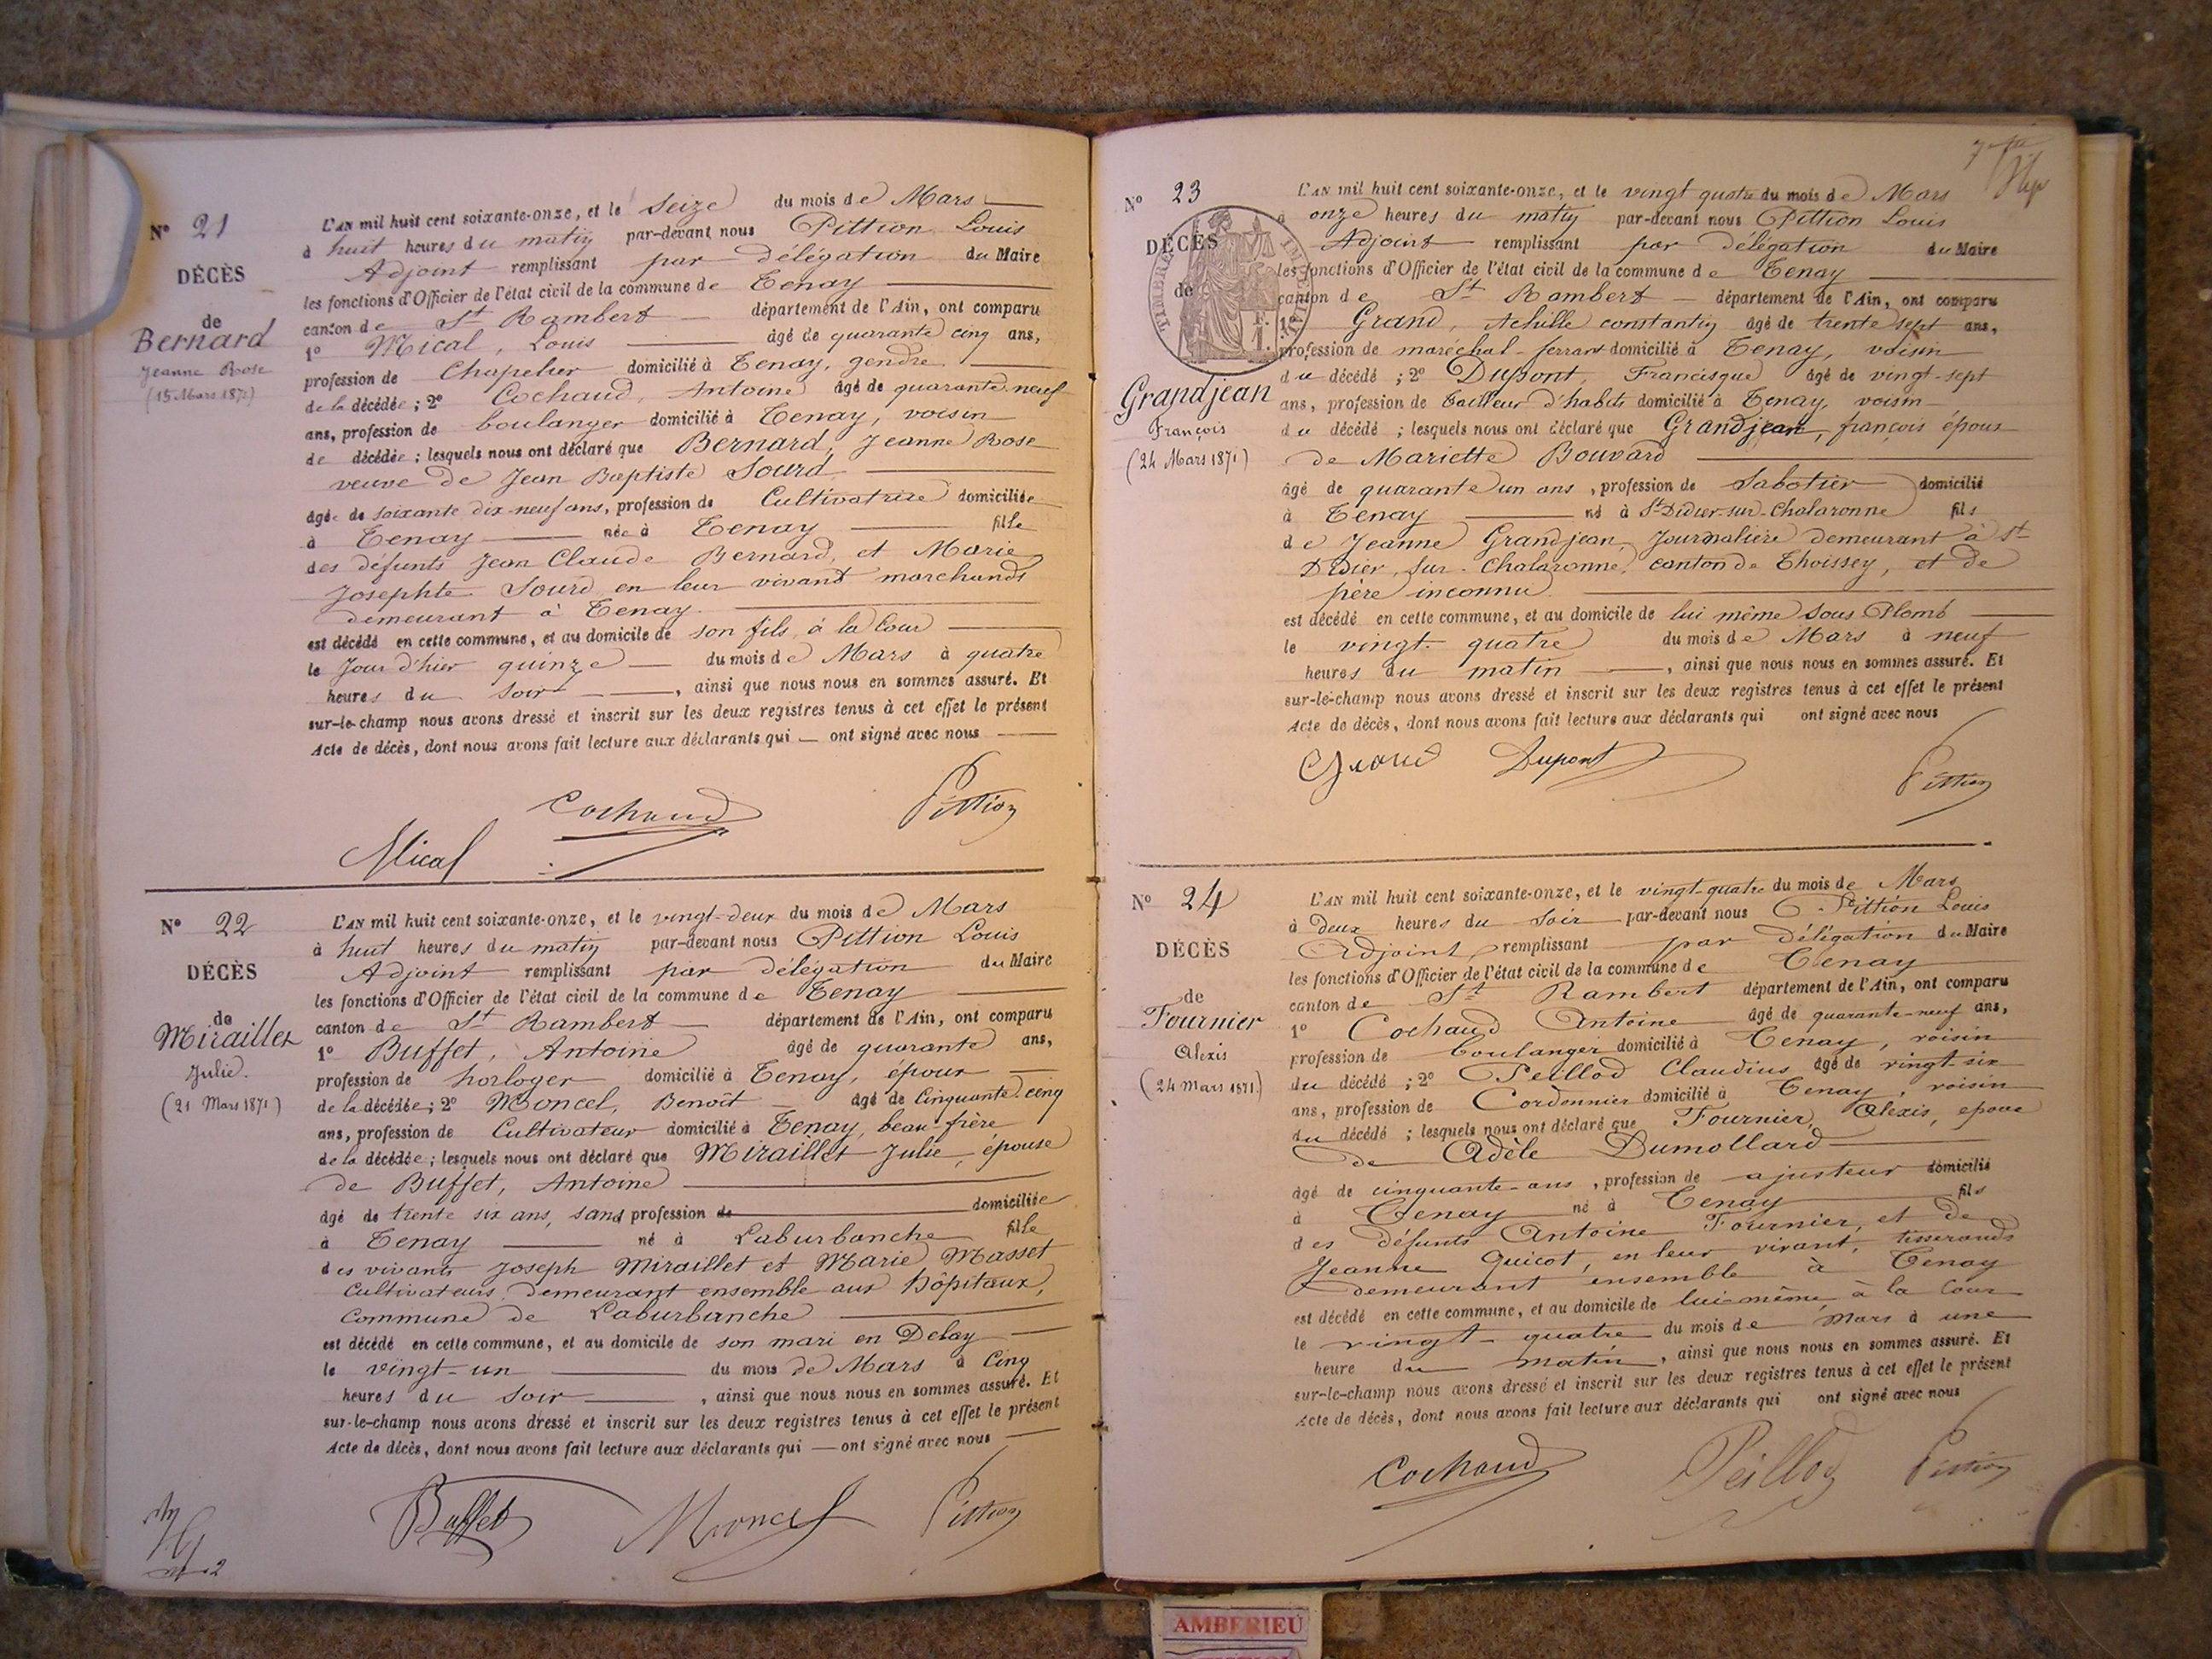 N° 21
DÉCÈS
de
Bernard
Jeanne Rose
(15 Mars 1871)
L'AN mil huit cent soixante-onze, et le Seize du mois de Mars
à huit heures du matin par-devant nous Pittion Louis
Adjoint remplissant par délégation du Maire
les fonctions d'Officier de l'état civil de la commune de Tenay
canton de St Rambert département de l'Ain, ont comparu
1° Mical, Louis âgé de quarante cinq ans,
profession de Chapelier domicilié à Tenay, gendre
de la décédée ; 2° Cochaud, Antoine âgé de quarante-neuf
ans, profession de boulanger domicilié à Tenay, voisin
de décédée ; lesquels nous ont déclaré que Bernard, Jeanne Rose
veuve de Jean Baptiste Sourd
âgée de soixante dix-neuf ans, profession de Cultivatrice domiciliée
à Tenay née à Tenay fille
des défunts Jean Claude Bernard, et Marie
Josephte Sourd en leur vivant marchands
demeurant à Tenay.
est décédé en cette commune, et au domicile de son fils, à la Cour
le Jour d'hier quinze du mois de Mars à quatre
heures du soir, ainsi que nous nous en sommes assuré. Et
sur-le-champ nous avons dressé et inscrit sur les deux registres tenus à cet effet le présent
Acte de décès, dont nous avons fait lecture aux déclarants qui — ont signé avec nous
Cochaud Pittion
Mical
N° 22
DÉCÈS
de
Miraillet
Julie.
(21 Mars 1871)
L'AN mil huit cent soixante-onze, et le vingt-deux du mois de Mars
à huit heures du matin par-devant nous Pittion Louis
Adjoint remplissant par délégation du Maire
les fonctions d'Officier de l'état civil de la commune de Tenay
canton de St Rambert département de l'Ain, ont comparu
1° Buffet, Antoine âgé de quarante ans,
profession de horloger domicilié à Tenay, époux
de la décédée ; 2° Moncel, Benoît âgé de Cinquante cinq
ans, profession de Cultivateur domicilié à Tenay, beau-frère
de la décédée ; lesquels nous ont déclaré que Miraillet Julie, épouse
de Buffet, Antoine
âgé de trente six ans, sans profession de domiciliée
à Tenay né à Laburbanche fille
des vivants Joseph Miraillet et Marie Masset
Cultivateurs, demeurant ensemble aux hôpitaux,
Commune de Laburbanche
est décédé en cette commune, et au domicile de son mari en Delay
le vingt-un du mois de Mars à Cinq
heures du soir, ainsi que nous nous en sommes assuré. Et
sur-le-champ nous avons dressé et inscrit sur les deux registres tenus à cet effet le présent
Acte de décès, dont nous avons fait lecture aux déclarants qui — ont signé avec nous
Buffet Moncel Pittion
N° 23
DÉCÈS
de
Grandjean
François
(24 Mars 1871)
TIMBRE
L'AN mil huit cent soixante-onze, et le vingt quatre du mois de Mars
à onze heures du matin par-devant nous Pittion Louis
Adjoint remplissant par délégation du Maire
les fonctions d'Officier de l'état civil de la commune de Tenay
canton de St Rambert département de l'Ain, ont comparu
1° Grand, Achille constantin âgé de trente sept ans,
profession de maréchal-ferrant domicilié à Tenay, voisin
du décédé ; 2° Dupont, Francisque âgé de vingt-sept
ans, profession de tailleur d'habits domicilié à Tenay, voisin
du décédé ; lesquels nous ont déclaré que Grandjean, françois époux
de Mariette Bouvard
âgé de quarante un ans, profession de Sabotier domicilié
à Tenay né à St Didier-sur-Chalaronne fils
de Jeanne Grandjean, Journalière demeurant à St
Didier, sur-Chalaronne, canton de Thoissey, et de
père inconnu
est décédé en cette commune, et au domicile de lui même Sous Plomb
le vingt-quatre du mois de Mars à neuf
heures du matin, ainsi que nous nous en sommes assuré. Et
sur-le-champ nous avons dressé et inscrit sur les deux registres tenus à cet effet le présent
Acte de décès, dont nous avons fait lecture aux déclarants qui ont signé avec nous
Grand Dupont Pittion
N° 24
DÉCÈS
de
Fournier
Alexis
(24 Mars 1871.)
L'AN mil huit cent soixante-onze, et le vingt-quatre du mois de Mars
à deux heures du soir par-devant nous Pittion Louis
Adjoint remplissant par délégation du Maire
les fonctions d'Officier de l'état civil de la commune de Tenay
canton de St Rambert département de l'Ain, ont comparu
1° Cochaud Antoine âgé de quarante-neuf ans,
profession de boulanger domicilié à Tenay, voisin
du décédé ; 2° Peillod Claudius âgé de vingt-six
ans, profession de Cordonnier domicilié à Tenay, voisin
du décédé ; lesquels nous ont déclaré que Fournier, Alexis, époux
de Adèle Dumollard
âgé de cinquante-ans, profession de ajusteur domicilié
à Tenay né à Tenay fils
des défunts Antoine Fournier, et de
Jeanne Quicot, en leur vivant, tisserands
demeurant ensemble à Tenay
est décédé en cette commune, et au domicile de lui-même, à la Cour
le vingt-quatre du mois de Mars à une
heure du matin, ainsi que nous nous en sommes assuré. Et
sur-le-champ nous avons dressé et inscrit sur les deux registres tenus à cet effet le présent
Acte de décès, dont nous avons fait lecture aux déclarants qui ont signé avec nous
Cochaud Peillod Pittion
AMBERIEU